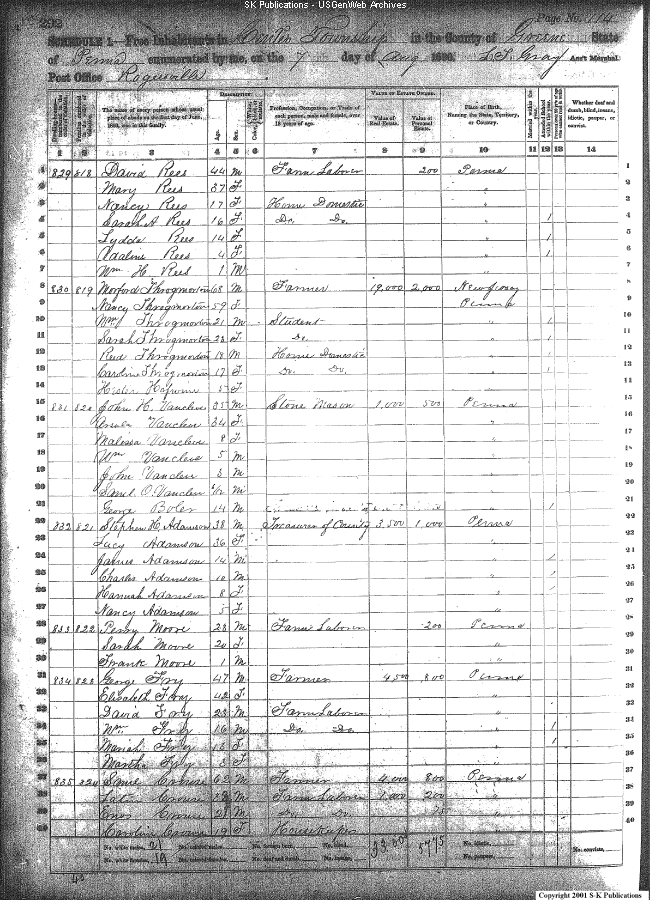 SK Publications - USGenWeb Archives
292 Page No. 114
SCHEDULE 1.—Free Inhabitants in Center Township in the County of Greene State
of Penna enumerated by me, on the 7 day of Aug 1860. L. S. Gray Ass't Marshal
Post Office Rogersville
DESCRIPTION. VALUE OF ESTATE OWNED.
The name of every person whose usual place of abode on the first day of June, 1860, was in this family. Age. Sex. Profession, Occupation, or Trade of each person, male and female, over 15 years of age. Value of Real Estate. Value of Personal Estate. Place of Birth, Naming the State, Territory, or Country. Married within the year. Whether deaf and dumb, blind, insane, idiotic, pauper, or convict.
1 2 3 4 5 6 7 8 9 10 11 12 13 14
1 829 818 David Rees 44 M Farm Laborer 200 Penna 1
2 Mary Rees 37 F " 2
3 Nancy Rees 17 F Home Domestic " 3
4 Sarah A Rees 16 F Do. Do. " 1 4
5 Lydda Rees 14 F " 1 5
6 Adaline Rees 4 F " 1 6
7 Wm H. Rees 1 M " 7
8 830 819 Morford Throgmorton 68 M Farmer 19,000 2,000 New Jersey 8
9 Nancy Throgmorton 59 F Penna 9
10 Wm Throgmorton 21 M Student " 1 10
11 Sarah Throgmorton 23 F Do. " 1
12 Throgmorton 18 M Home Domestic " 1
13 Caroline Throgmorton 17 F Do. Do. " 1
14 Hester 5 F "
15 831 820 John H. Vancleve 35 M Stone Mason 1,000 500 Penna
16 Vancleve 34 F "
17 Malissa Vancleve 8 F "
18 Wm Vancleve 5 M "
19 John Vancleve 3 M "
20 Saml O. Vancleve M "
21 George 14 M " 1
22 832 821 Stephen H. Adamson 38 M Treasurer of County 3,500 1,000 Penna
23 Lucy Adamson 36 F "
24 James Adamson 14 M " 1
25 Charles Adamson 10 M " 1
26 Hannah Adamson 8 F " 1
27 Nancy Adamson 5 F "
28 833 822 Perry Moore 23 M Farm Laborer 200 Penna
29 Sarah Moore 20 F "
30 Frank Moore 1 M "
31 834 823 George Fry 47 M Farmer 4,500 800 Penna
32 Elisabeth Fry 42 F "
33 David Fry 23 M Farm Laborer "
34 Wm Fry 16 M Do. Do. "
35 Mariah Fry 15 F "
36 Martha Fry 8 F "
37 835 824 Saml Crouse 62 M Farmer 4,000 800 Penna
38 Crouse M Farm Laborer 1,000 200 "
39 Enos Crouse 21 M Do. Do. 75 "
40 Caroline Crouse 19 F Housekeeper " 40
No. white males, 21 No. colored males, No. foreign born, No. blind, 33,000 5775 No. idiotic, No. convicts,
No. white females, 19 No. colored females, No. deaf and dumb, No. insane, No. paupers,
40
Copyright 2001 S-K Publications